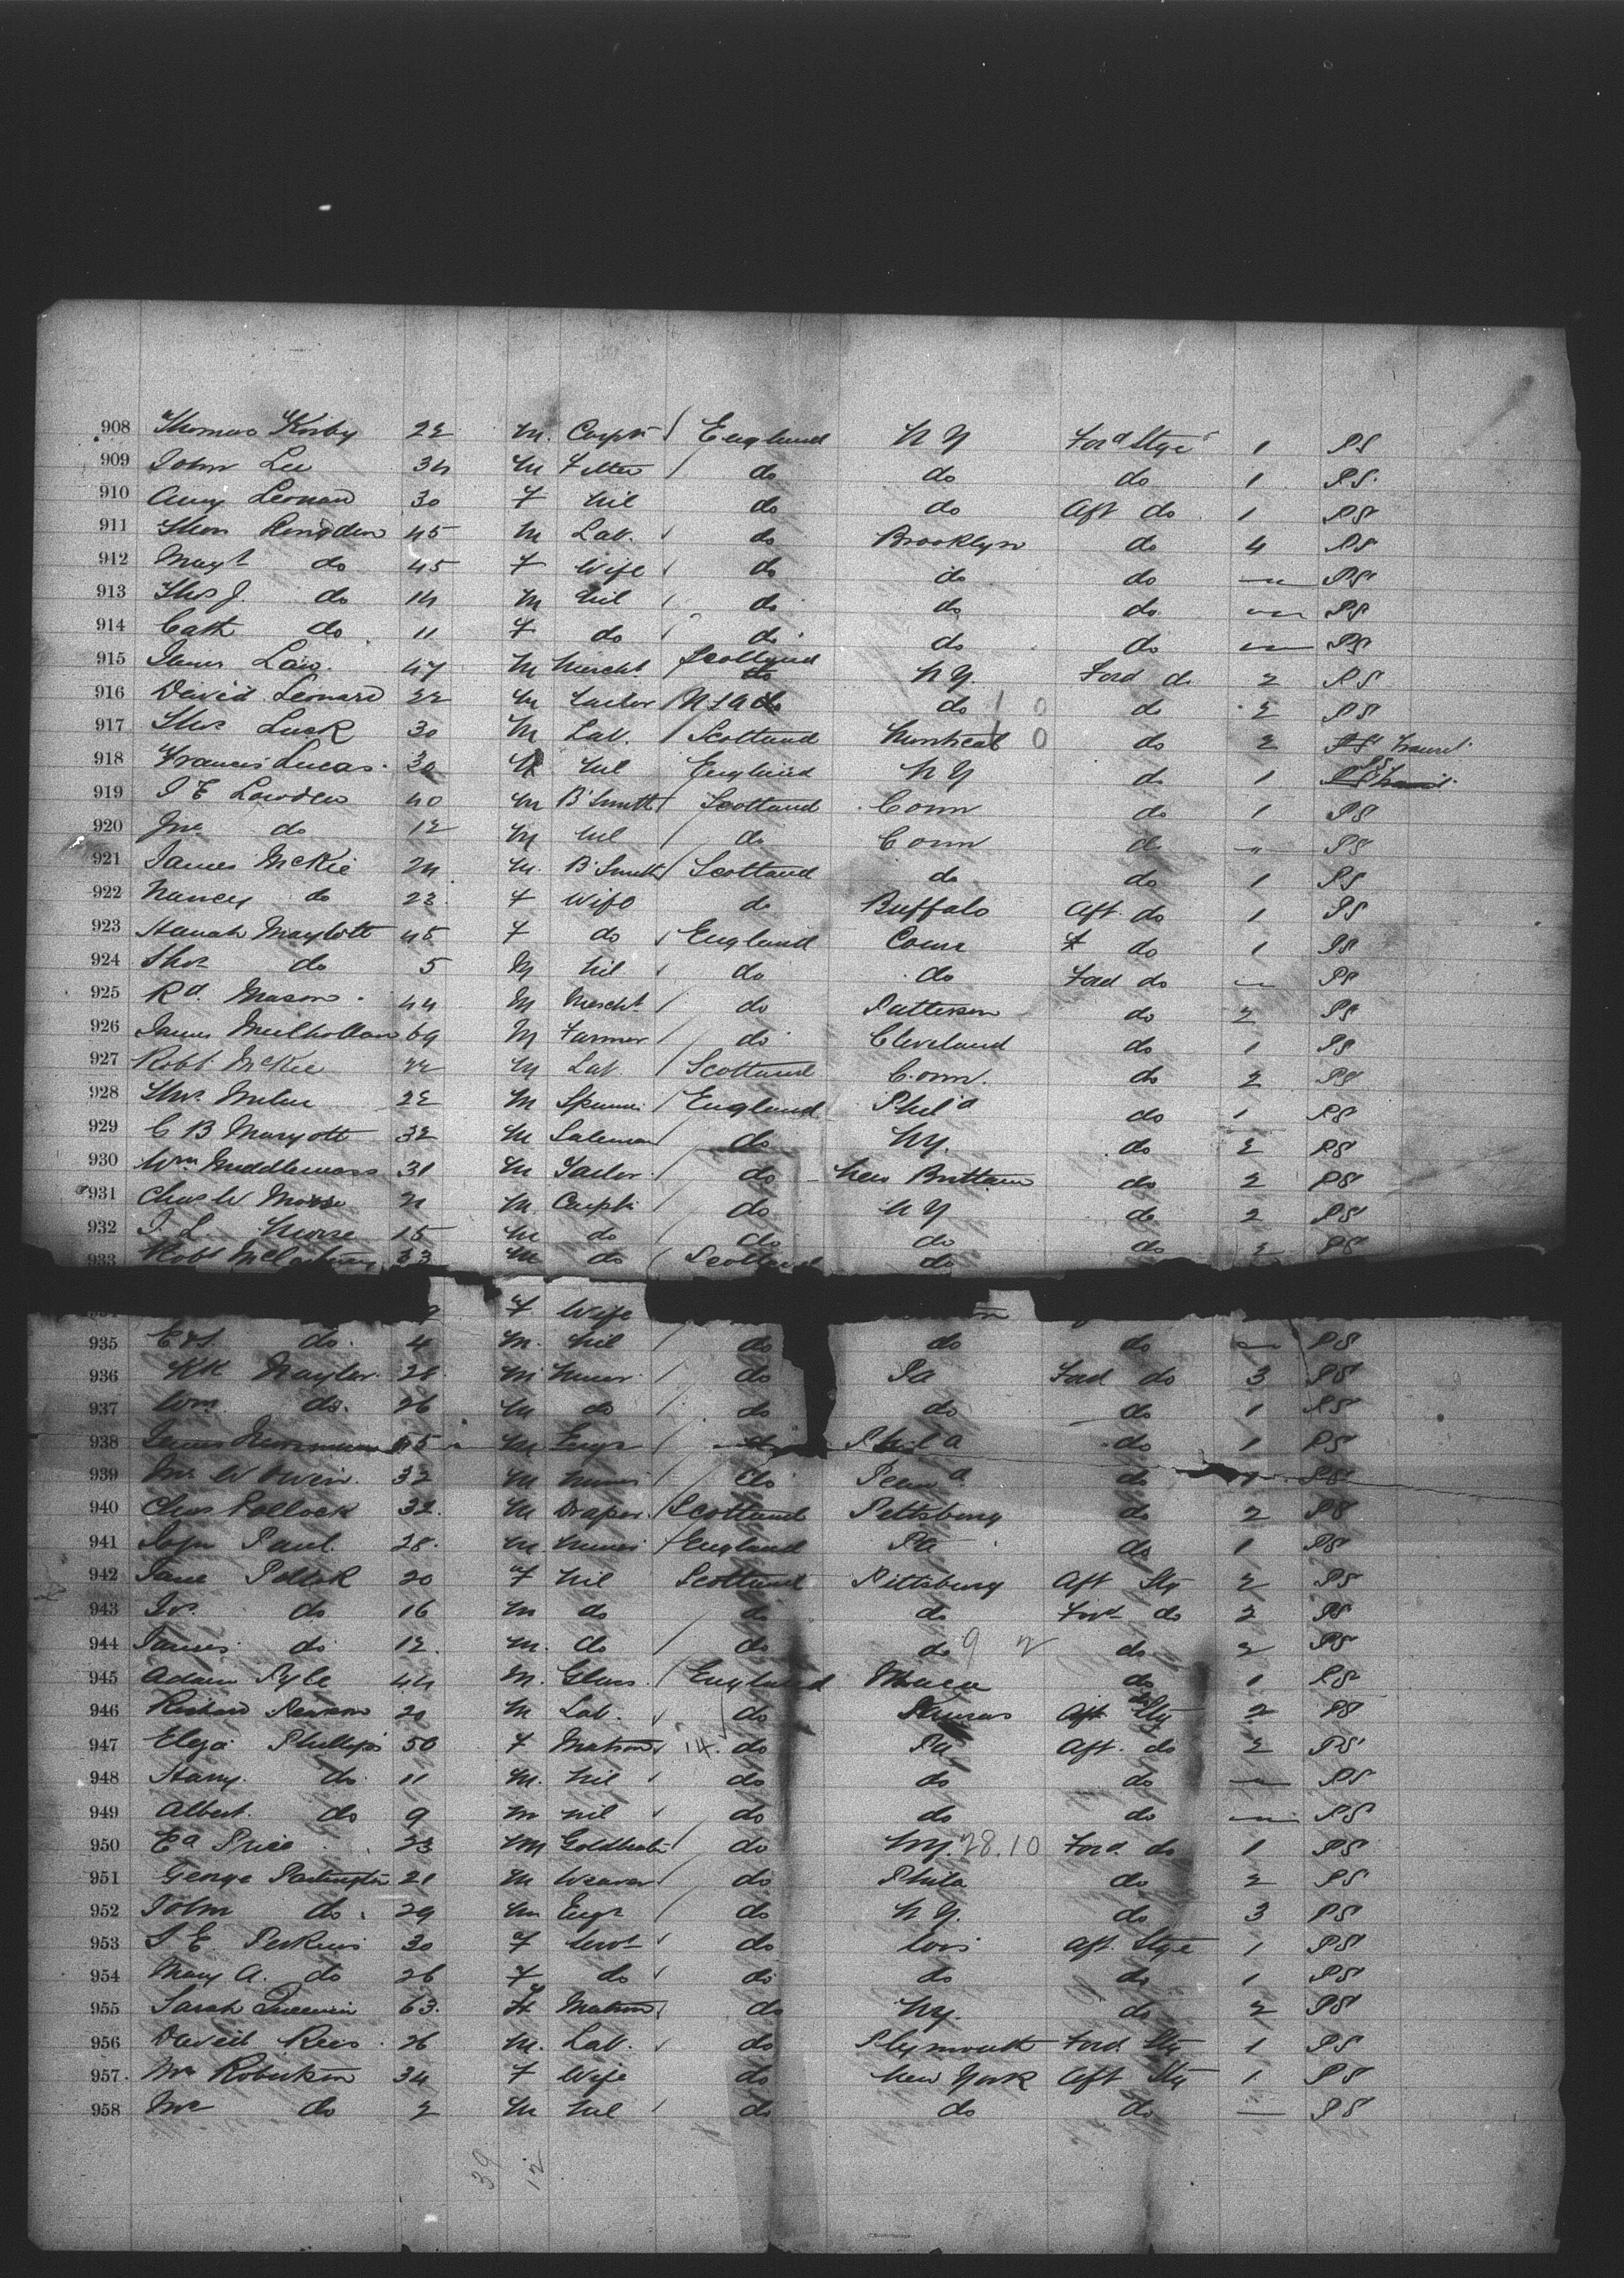 908 Thomas Kirby 22 M. Carptr England N Y Ford Stge 1 PS
909 John Lee 34 M Fitter do do do 1 PS.
910 Amy Leonard 30 F Nil do do Aft do 1 PS
911 Thos 45 M Lab. do Brooklyn do 4 PS
912 Magt do 45 F Wife do do do — PS
913 Thos J. do 14 M Nil do do do — PS
914 Cath do 11 F do do do do — PS
915 James Law. 47 M Mercht Scotland N Y. Ford do 2 PS
916 David Leonard 22 M Tailor do 1 0 do 2 PS
917 Thos Luck 30 M Lab. Scotland Montreal 0 do 2 PS Transt.
918 Francis Lucas. 30 Nil England N Y do 1 PS
919 J E Lowden 40 M B Smith Scotland Conn do 1 PS
920 Jno do 12 M Nil do Conn do " PS
921 James McKie 24 M. B Smith Scotland do do 1 PS
922 Nancy do 23 F Wife do Buffalo Aft do 1 PS
923 Hanah Maylott 45 F do England Conn do 1 PS
924 Thos do 5 M Nil do do Ford do — PS
925 Rd. Mason. 44 M Mercht do Patterson do 2 PS
926 James Mulhollan 69 M Farmer do Cleveland do 1 PS
927 Robt McKie 22 M Lab Scotland Conn. do 2 PS
928 Thos. Milner 22 M England Phila do 1 PS
929 C B Maryott 32 M Salesman do NY. do 2 PS
930 Wm Middlemass 31 M Tailor do New Brittain do 2 PS
931 Chas W Morse 21 M. Carptr do N Y do 2 PS
932 J. L. Morse 15 M do do do do 2 PS
933 Robt 33 M do Scotland do
F Wife
935 do. 4 M. Nil do do do — PS
936 Naylor. 26 M Miner do Pa Ford do 3 PS
937 Wm. do. 26 M do do do do 1 PS
938 James 45 M Engr do Phila do 1 PS
939 Jno W Owen 32 M Miner do Penna do 1 PS
940 Chas Pollock 32. M Draper. Scotland Pettsburg do 2 PS
941 Josh Paul. 28. M Miner England Pa do 1 PS
942 Jane Pollok 20 F Nil Scotland Pittsburg Aft Stg 2 PS
943 Jno. do 16 M do do do Ford do 2 PS
944 James do 12. M. do do do 9 2 do 2 PS
945 Adam Pyle 44 M. Glass. England Ithaca do 1 PS
946 Richard 20 M Lab. do Kansas Aft Stg 2 PS
947 Eliza Phillips 50 F Matron 14. do Pa Aft. do 2 PS
948 Harry. do 11 M. Nil do do do — PS
949 Albert. do 9 M Nil do do do — PS
950 Ed Price 23 M Goldbeater do NY. 28.10 Ford do 1 PS
951 George Partington 21 M Weaver do Phila do 2 PS
952 John do. 29 M Engr do N Y. do 3 PS
953 J E Perkins 30 F Servt do Aft. Stge 1 PS
954 Mary A. do 26 F do do do do 1 PS
955 Sarah 63. F Matron do NY. do 2 PS
956 David Rees 26 M. Lab. do Plymouth Ford Stg 1 PS
957. Mrs Robertson 34 F Wife do New York Aft Stg 1 PS
958 Jno do 2 M Nil do do do — PS
39 12